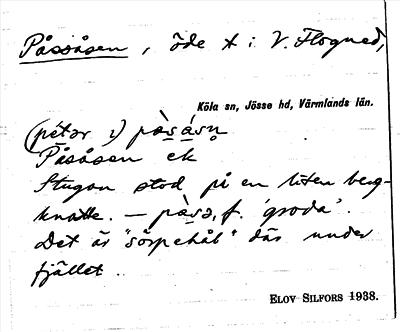 Påsåsen, öde t i V. Flogned,
Köla sn, Jösse hd, Värmlands län.
(pétər 1) pàsásn̥
Påsåsen ek
Stugan stod på en liten berg-
knatte. – pàsə, f. 'groda'.
Det är "sörpehål" där under
fjället.
ELOV SILFORS 1938.